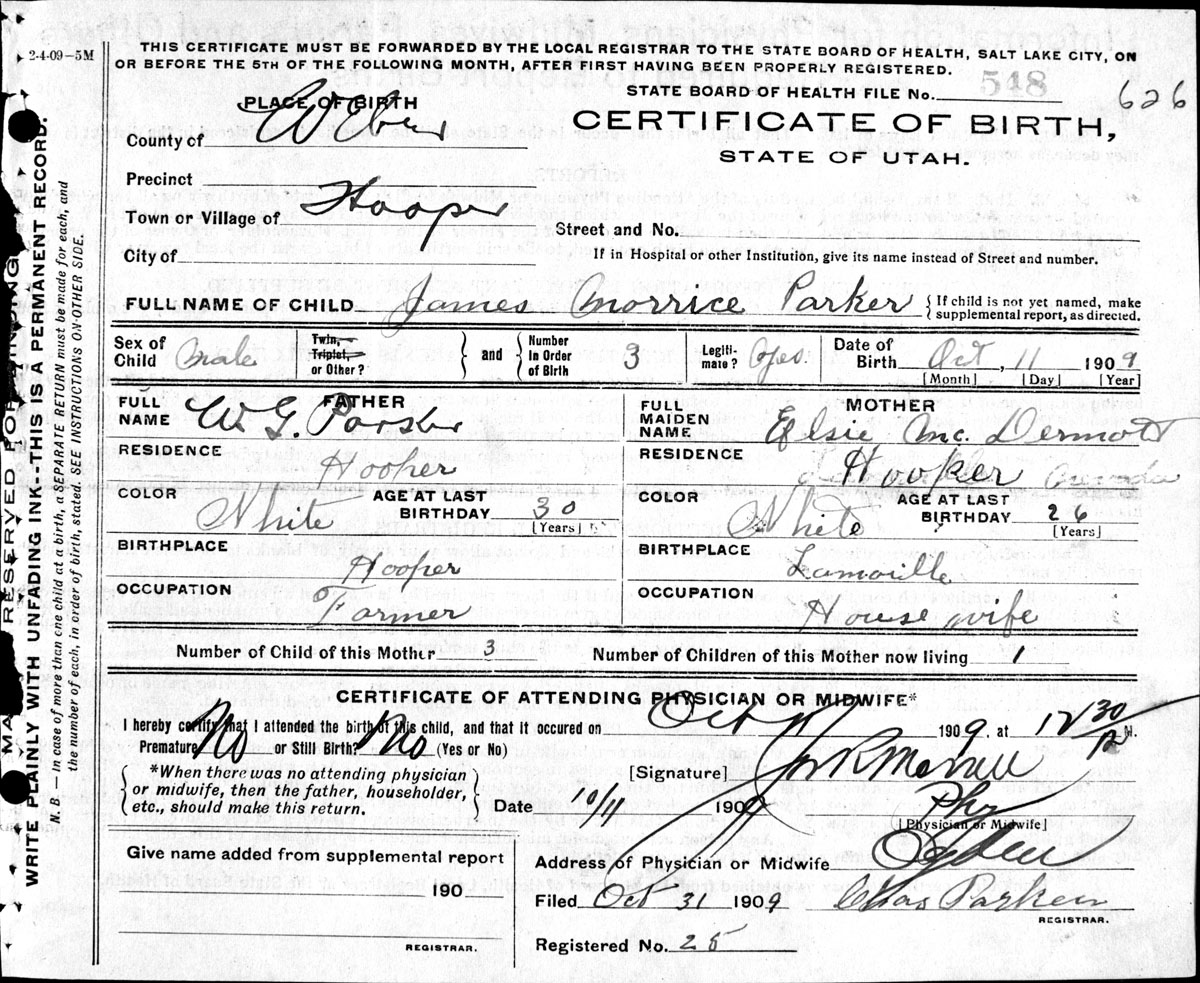 2-4-09-5M
THIS CERTIFICATE MUST BE FORWARDED BY THE LOCAL REGISTRAR TO THE STATE BOARD OF HEALTH, SALT LAKE CITY, ON
OR BEFORE THE 5TH OF THE FOLLOWING MONTH, AFTER FIRST HAVING BEEN PROPERLY REGISTERED.
STATE BOARD OF HEALTH FILE No. 548
626
PLACE OF BIRTH
County of Weber
CERTIFICATE OF BIRTH,
STATE OF UTAH.
Precinct
Town or Village of Hooper
Street and No.
City of
If in Hospital or other Institution, give its name instead of Street and number.
FULL NAME OF CHILD James Morrice Parker { If child is not yet named, make supplemental report, as directed.
Sex of Child Male Twin, Triplet, or Other? } and { Number in Order of Birth 3 Legiti-mate? Yes. Date of Birth Oct, 11 1909
[Month] [Day] [Year]
FATHER
FULL NAME W. G. Parker
RESIDENCE
Hooper
COLOR White AGE AT LAST BIRTHDAY 30
[Years]
BIRTHPLACE
Hooper
OCCUPATION
Farmer
MOTHER
FULL MAIDEN NAME Elsie Mc. Dermott
RESIDENCE
Hooper
COLOR White AGE AT LAST BIRTHDAY 26
[Years]
BIRTHPLACE
Lamoille
OCCUPATION
House wife
Number of Child of this Mother 3 Number of Children of this Mother now living 1
CERTIFICATE OF ATTENDING PHYSICIAN OR MIDWIFE*
I hereby certify that I attended the birth of this child, and that it occured on Oct 11 1909, at 12 30 M.
Premature No or Still Birth? No (Yes or No)
{ *When there was no attending physician or midwife, then the father, householder, etc., should make this return. }
[Signature]
Date 10/11 190
Phy
[Physician or Midwife]
Give name added from supplemental report
190
REGISTRAR.
Address of Physician or Midwife Ogden
Filed Oct 31 1909 Chas Parker
REGISTRAR.
Registered No. 25
MARGIN RESERVED FOR BINDING
WRITE PLAINLY WITH UNFADING INK--THIS IS A PERMANENT RECORD.
N. B.—In case of more then one child at a birth, a SEPARATE RETURN must be made for each, and
the number of each, in order of birth, stated. SEE INSTRUCTIONS ON OTHER SIDE.